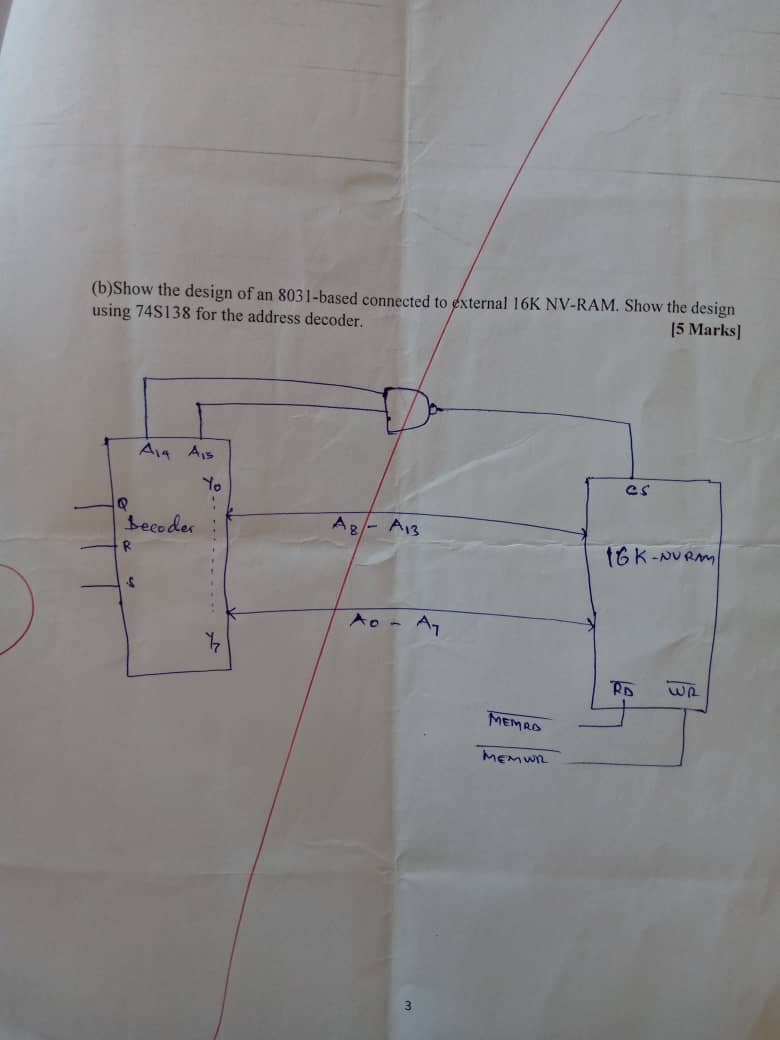 (b)Show the design of an 8031-based connected to external 16K NV-RAM. Show the design
using 74S138 for the address decoder.
[5 Marks]
A14 A15
Y0
CS
Q
Decoder
A8 - A13
R
16K-NVRAM
S
A0 - A7
Y7
RD WR
MEMRD
MEMWR
3